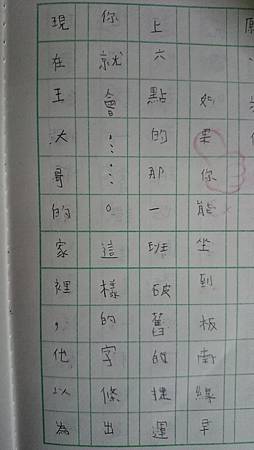 如果你能坐到板南線早
上六點的那一班破舊的捷運
你就會……。這樣的字條出
現在王大哥的家裡，他以為